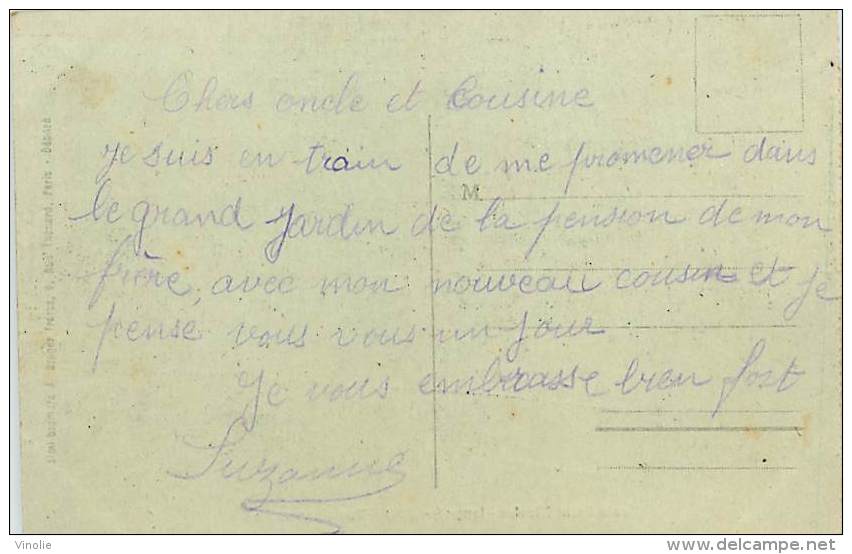 Chers oncle et Cousine
Je suis en train de me promener dans
M.
le grand Jardin de la pension de mon
frère, avec mon nouveau cousin et je
pense vous vous un jour
Je vous embrasse bien fort
Suzanne
Vinolie
www.delcampe.net